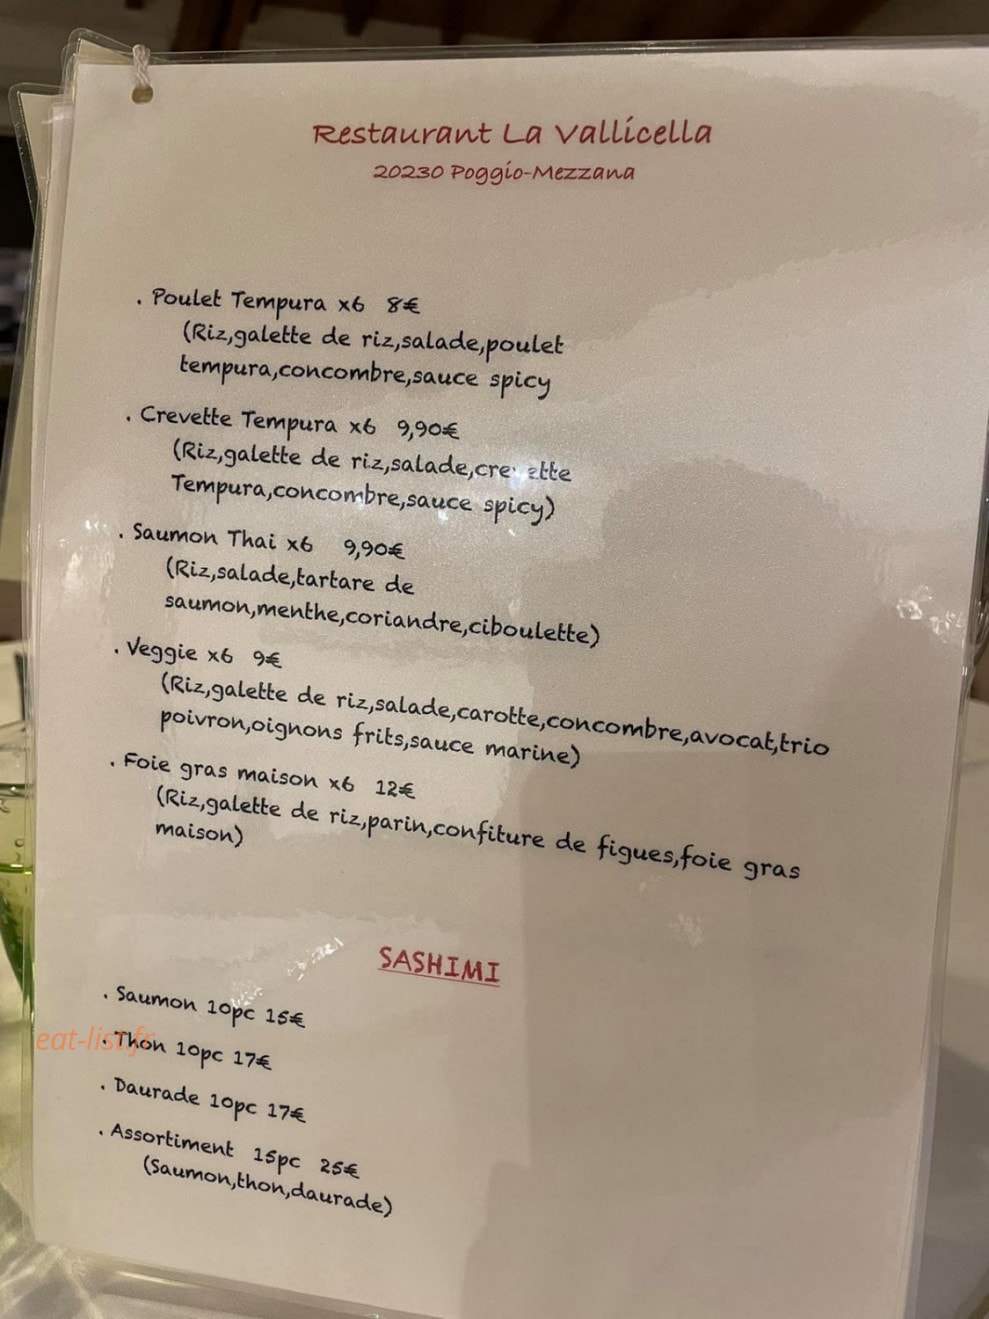 Restaurant La Vallicella
20230 Poggio-Mezzana
. Poulet Tempura x6 8€
(Riz,galette de riz,salade,poulet
tempura,concombre,sauce spicy
. Crevette Tempura x6 9,90€
(Riz,galette de riz,salade,crevette
Tempura,concombre,sauce spicy)
. Saumon Thai x6 9,90€
(Riz,salade,tartare de
saumon,menthe,coriandre,ciboulette)
. Veggie x6 9€
(Riz,galette de riz,salade,carotte,concombre,avocat,trio
poivron,oignons frits,sauce marine)
. Foie gras maison x6 12€
(Riz,galette de riz,parin,confiture de figues,foie gras
maison)
SASHIMI
. Saumon 10pc 15€
. Thon 10pc 17€
eat-list.fr
. Daurade 10pc 17€
. Assortiment 15pc 25€
(Saumon,thon,daurade)